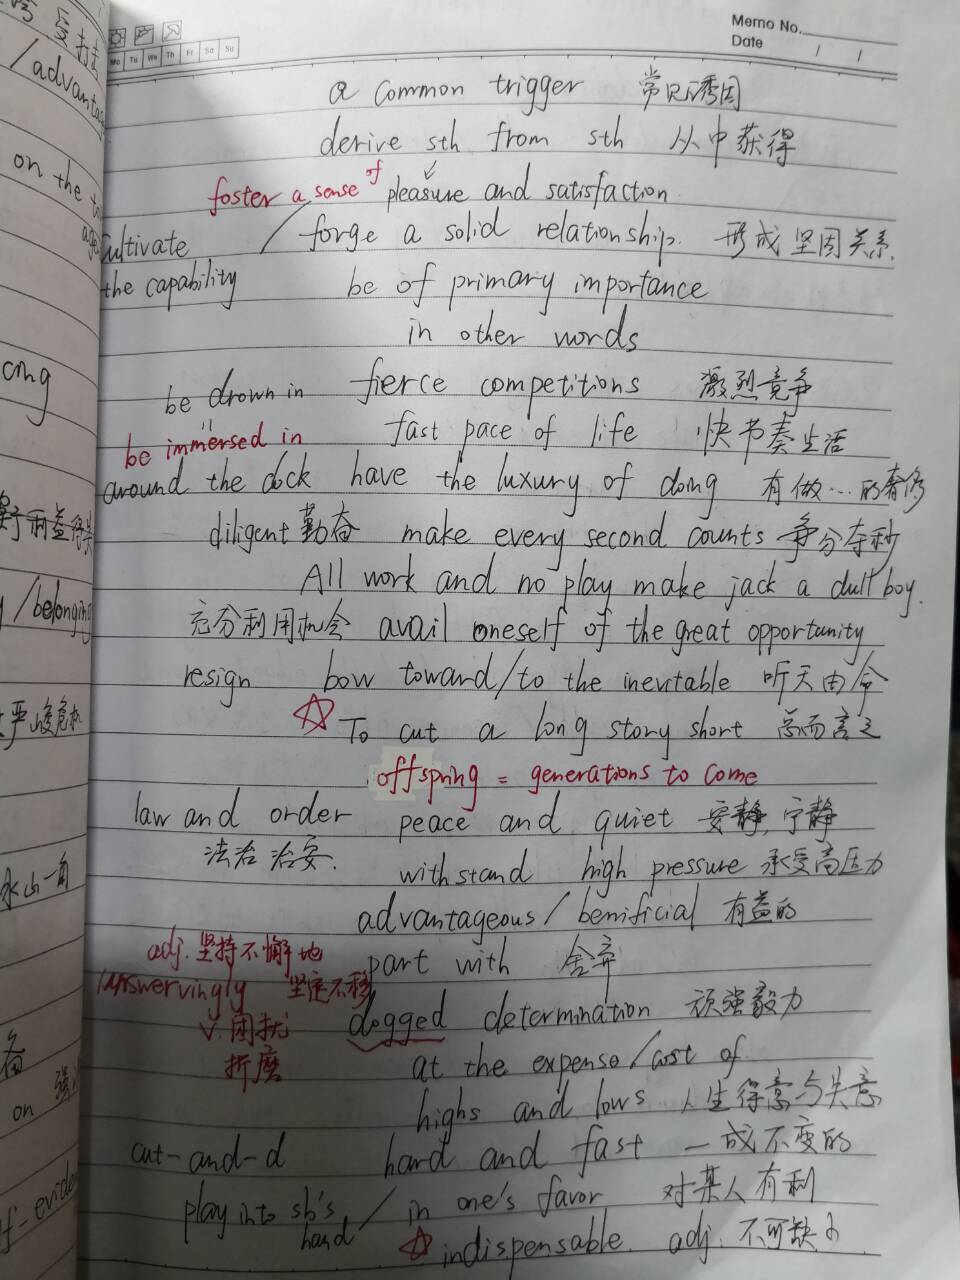 Memo No.
Mo Tu We Th Fr Sa Su
Date / /
a common trigger 常见诱因
derive sth from sth 从中获得
foster a sense of pleasure and satisfaction
Cultivate / forge a solid relationship. 形成坚固关系.
the capability be of primary importance
in other words
be drown in fierce competitions 激烈竞争
be immersed in fast pace of life 快节奏生活
around the clock have the luxury of doing 有做…的奢侈
diligent 勤奋 make every second counts 争分夺秒
All work and no play make jack a dull boy.
充分利用机会 avail oneself of the great opportunity
resign bow toward/to the inevitable 听天由命
To cut a long story short 总而言之
offspring = generations to come
law and order peace and quiet 安静,宁静
法治 治安. withstand high pressure 承受高压力
advantageous/benificial 有益的
adj. 坚持不懈地 part with 舍弃
unswervingly 坚定不移
dogged determination 顽强毅力
v. 困扰
折磨 at the expense/cost of
highs and lows 人生得意与失意
cut-and-d hard and fast 一成不变的
play into sb's hand / in one's favor 对某人有利
indispensable. adj. 不可缺少
/advantag
on the
cing
/belonging
严峻危机
冰山一角
on
f-eviden